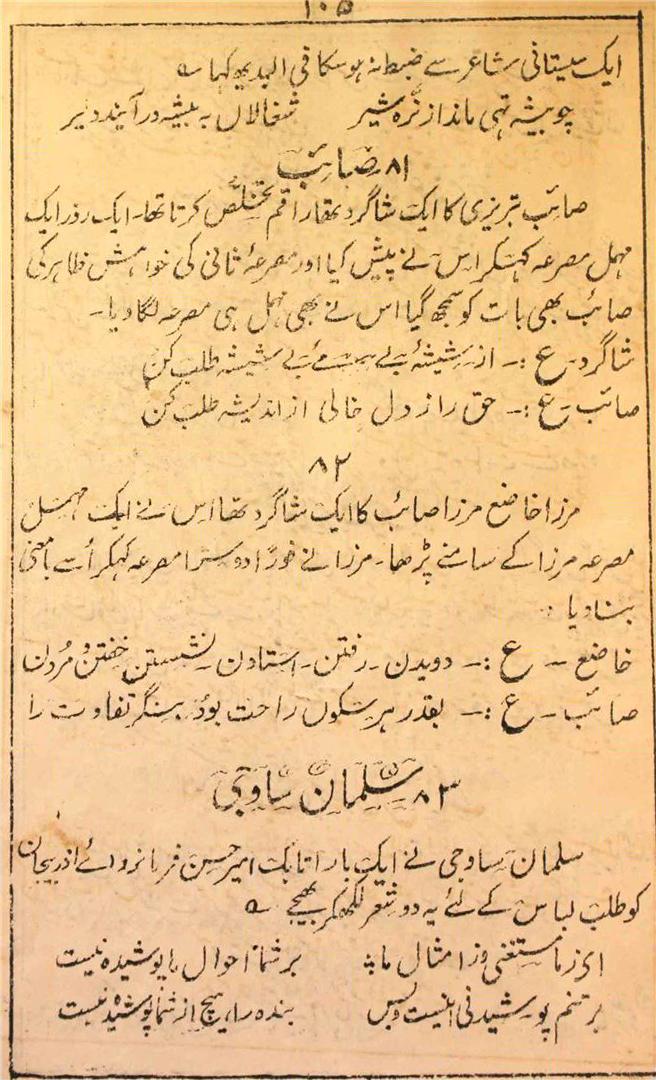 ۱۰۵
ایک سیستانی شاعر سے ضبط نہ ہو سکا فی البدیہہ کہا ؎
چو بیشہ تہی ماند از نرّہ شیر شغالاں بہ بیشہ در آیند دلیر
۸۱۔ صائب
صائب تبریزی کا ایک شاگرد تھا راقم تخلّص کرتا تھا۔ ایک روز ایک
مہمل مصرعہ کہکر اس نے پیش کیا اور مصرعۂ ثانی کی خواہش ظاہر کی
صائب بھی بات کو سمجھ گیا اس نے بھی مہمل ہی مصرعہ لگا دیا۔
شاگرد۔ ع :۔ از شیشۂ بے مے مئے بے شیشہ طلب کن
صائب۔ ع :۔ حق را ز دل خالی از اندیشہ طلب کن
۸۲
مرزا خاضع مرزا صائب کا ایک شاگرد تھا اس نے ایک مہمل
مصرعہ مرزا کے سامنے پڑھا۔ مرزا نے فوراً دوسرا مصرعہ کہکر اُسے بامعنی
بنا دیا۔
خاضع ۔ ع :۔ دویدن۔ رفتن۔ استادن۔ نشستن خفتن و مُردن
صائب ۔ ع :۔ بقدر ہر سکوں راحت بود بنگر تفاوت را
۸۳۔ سلمان ساوجی
سلمان ساوجی نے ایک بار اتابک امیر حسین فرمانروائے آذربیجان
کو طلب لباس کے لئے یہ دو شعر لکھکر بھیجے ؎
ای ز ما مستغنی و ز امثال ما بر شما احوال ما پوشیدہ نیست
بر تنم پوشیدنی اینست و بس بندہ را ہیچ از شما پوشیدہ نیست